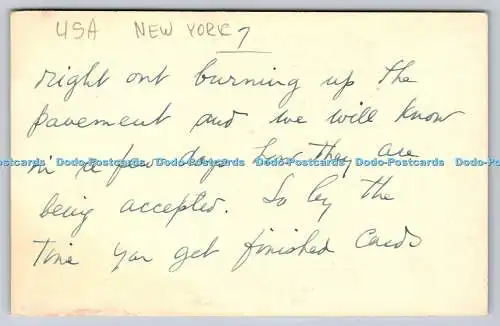 USA NEW YORK 7
right out burning up the
pavement and we will know
in a few days how they are
Dodo-Postcards Dodo-Postcards Dodo-Postcards Dodo-Postcards Dodo-Postcards Dodo-Postcards
being accepted. So by the
Time you get finished Cards